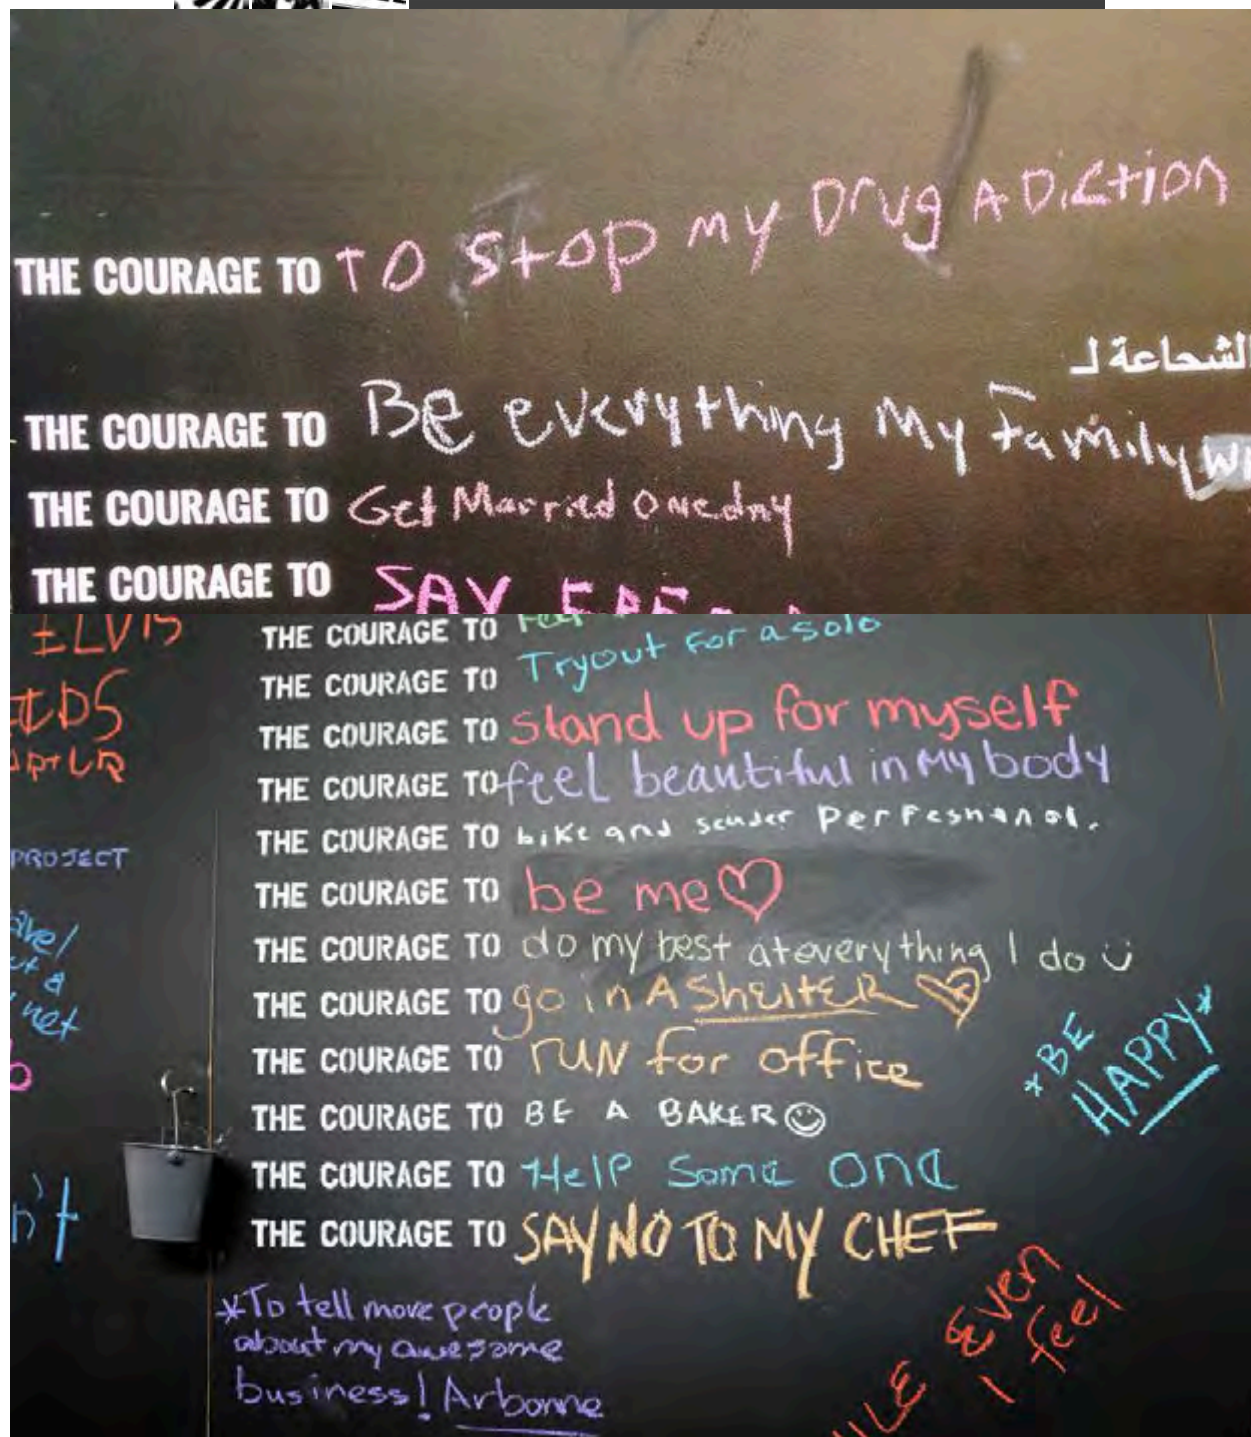 THE COURAGE TO TO Stop my Drug ADiction
الشجاعة لـ
THE COURAGE TO Be everything My Family
THE COURAGE TO Get Married Oneday
THE COURAGE TO SAY
ELVIS
THE COURAGE TO
THE COURAGE TO Tryout for a solo
THE COURAGE TO Stand up for myself
THE COURAGE TO feel beautiful in My body
THE COURAGE TO bike and scuder perfeshanal.
PROJECT
THE COURAGE TO be me♡
THE COURAGE TO do my best at everything I do ü
THE COURAGE TO go in A ShelteR ♡
net
THE COURAGE TO RUN for office
*BE
HAPPY*
THE COURAGE TO BE A BAKER☺
THE COURAGE TO Help Some One
THE COURAGE TO SAY NO TO MY CHEF
*To tell more people
about my awesome
business! Arbonne
EVEN
I feel